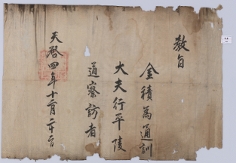 教旨
金積爲通訓
大夫行平陵
道察訪者
天啓四年十二月二十日